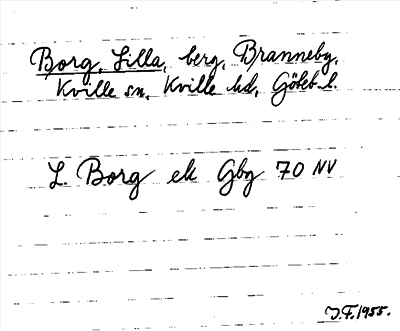 Borg, Lilla, berg, Branneby,
Kville sn, Kville hd, Göteb. l.
L. Borg ek Gbg 70 NV
I.F. 1955.